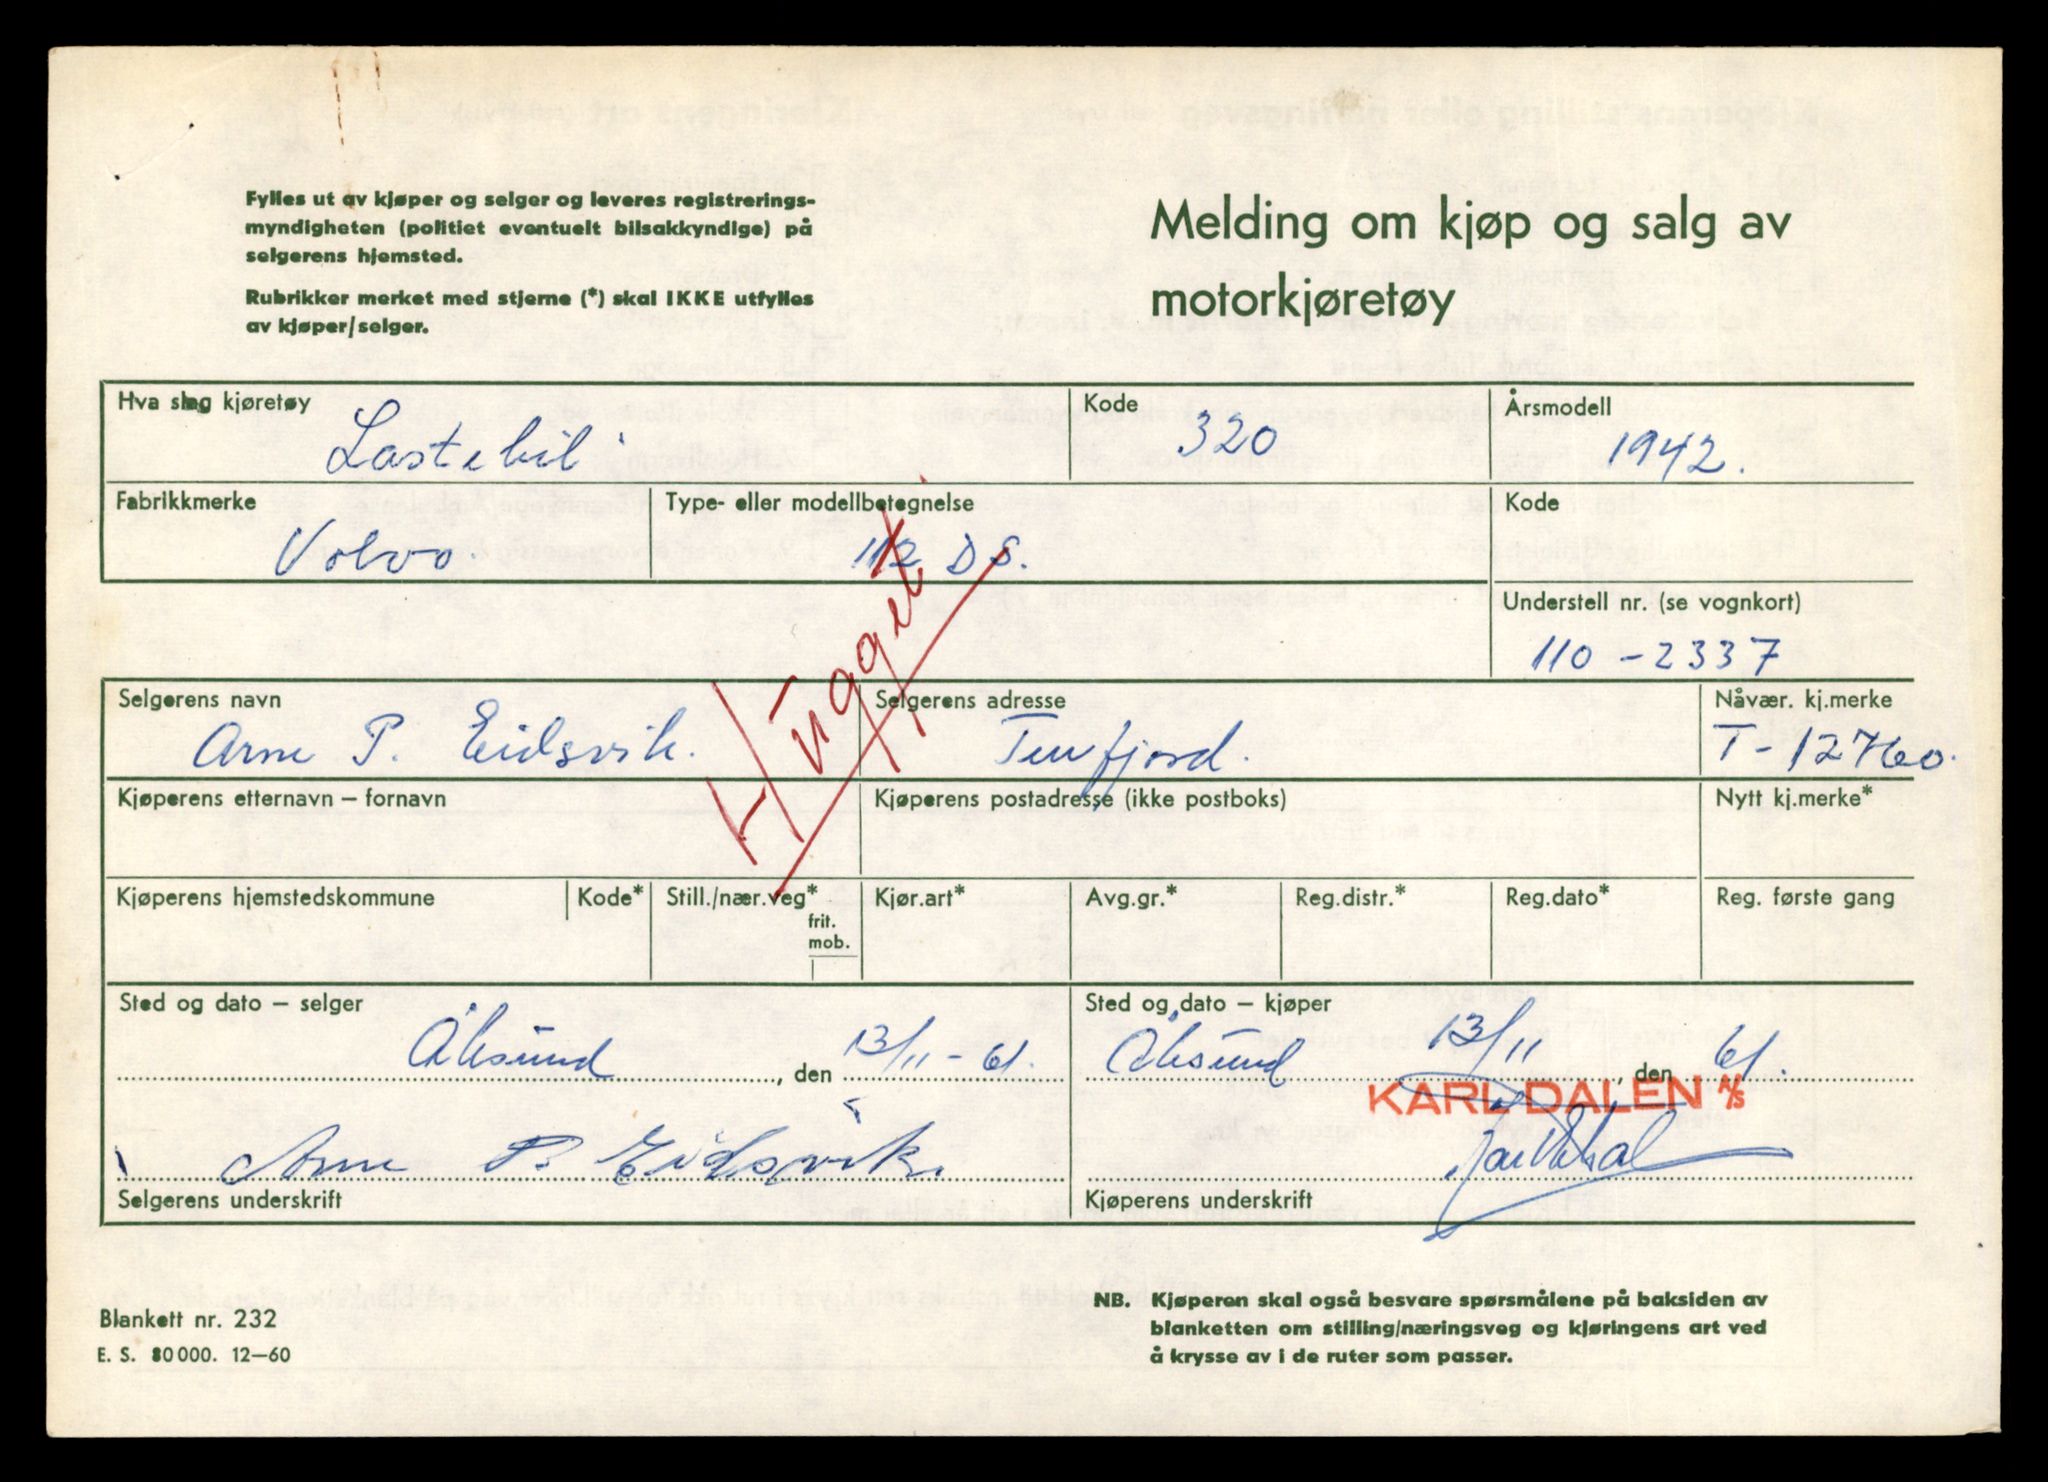 Fylles ut av kjøper og selger og leveres registrerings-
myndigheten (politiet eventuelt bilsakkyndige) på
selgerens hjemsted.
Rubrikker merket med stjerne (*) skal IKKE utfylles
av kjøper/selger.
Melding om kjøp og salg av
motorkjøretøy
Hva slag kjøretøy
Lastebil
Kode
320
Årsmodell
1942.
Fabrikkmerke
Volvo.
Type- eller modellbetegnelse
112 D S.
Kode
Understell nr. (se vognkort)
110-2337
Hugget
Selgerens navn
Arne P. Eidsvik.
Selgerens adresse
Tennfjord.
Nåvær. kj.merke
T-12760.
Kjøperens etternavn – fornavn
Kjøperens postadresse (ikke postboks)
Nytt kj.merke*
Kjøperens hjemstedskommune
Kode*
Still./nær.veg*
frit.
mob.
Kjør.art*
Avg.gr.*
Reg.distr.*
Reg.dato*
Reg. første gang
Sted og dato – selger
Ålesund, den 13/11-61.
Sted og dato – kjøper
Ålesund 13/11, den 61.
KARL DALEN A/S
Arne P. Eidsvik.
Selgerens underskrift
Kjøperens underskrift
Blankett nr. 232
E. S. 80000. 12–60
NB. Kjøperen skal også besvare spørsmålene på baksiden av
blanketten om stilling/næringsveg og kjøringens art ved
å krysse av i de ruter som passer.